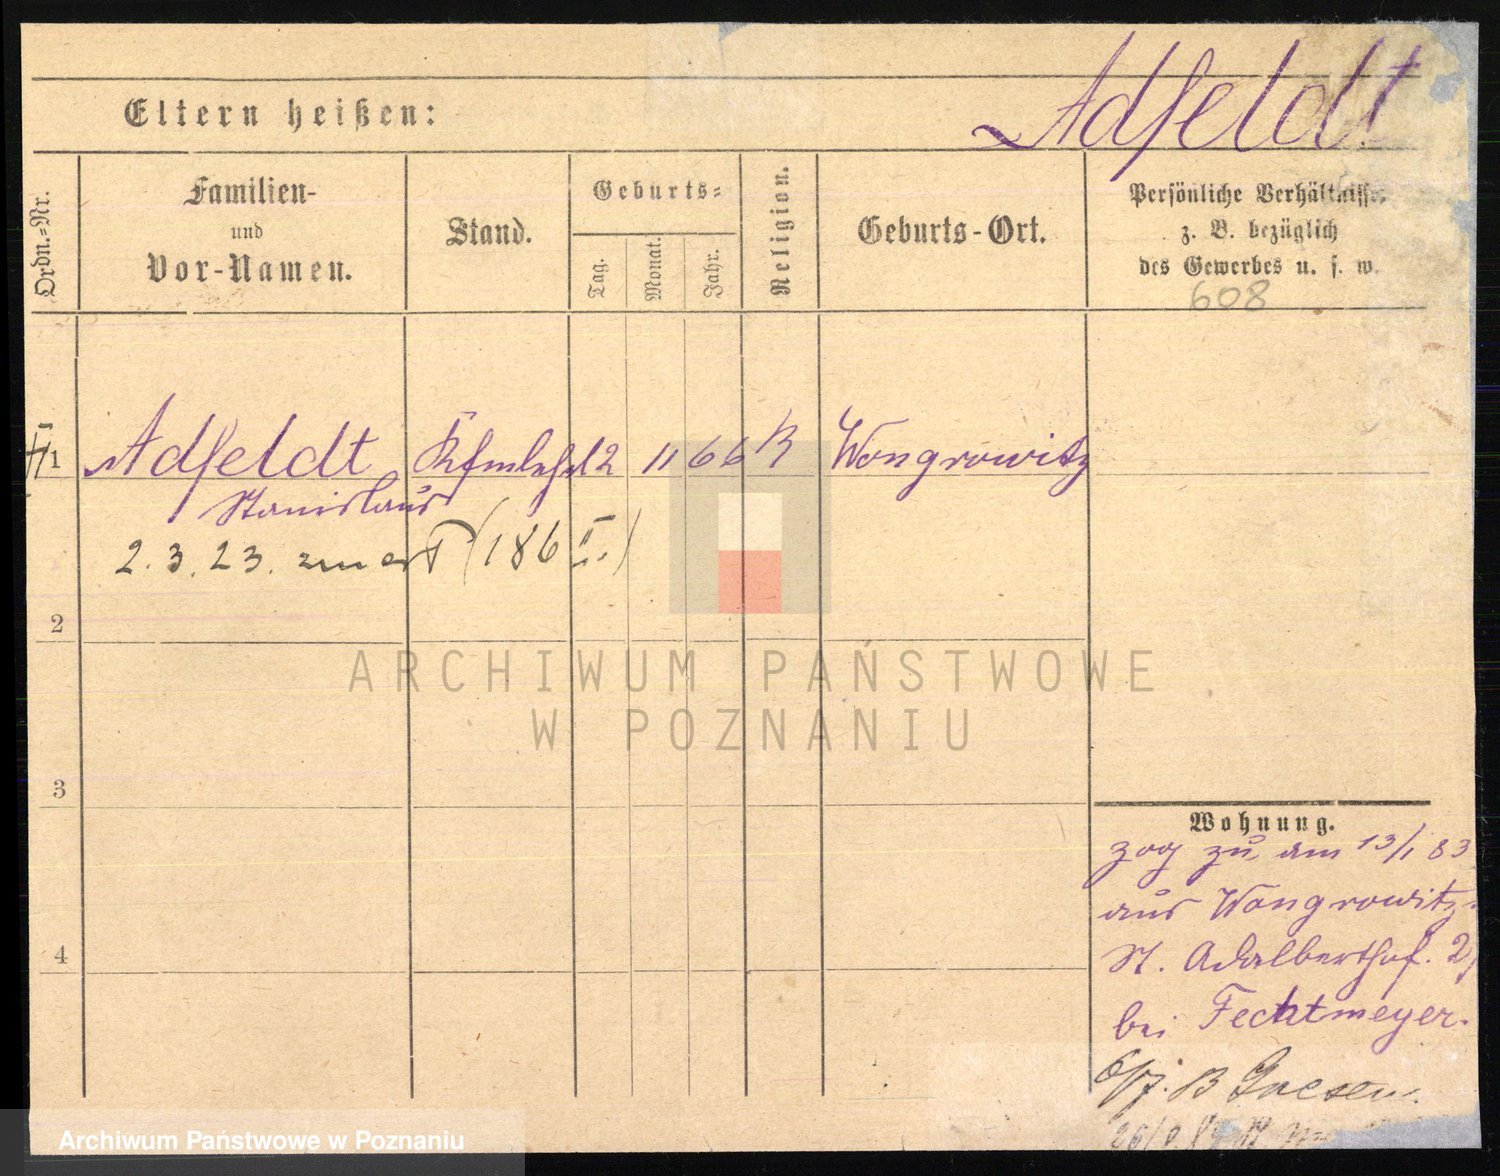 Adfeldt
Eltern heißen:
Ordn.=Nr.
Familien-
und
Vor-Namen.
Stand.
Geburts=
Tag.
Monat.
Jahr.
Religion.
Geburts-Ort.
Persönliche Verhältnisse,
z. B. bezüglich
des Gewerbes u. s. w.
608
1 Adfeldt 2 11 66 Wongrowitz
Stanislaus
2. 3. 23. (186 II.)
2
3
4
Wohnung.
zog zu am 13/1 83
aus Wongrowitz.
St. Adalberthof. 2
bei Fechtmeyer.
Gnesen
ARCHIWUM PAŃSTWOWE
W POZNANIU
Archiwum Państwowe w Poznaniu